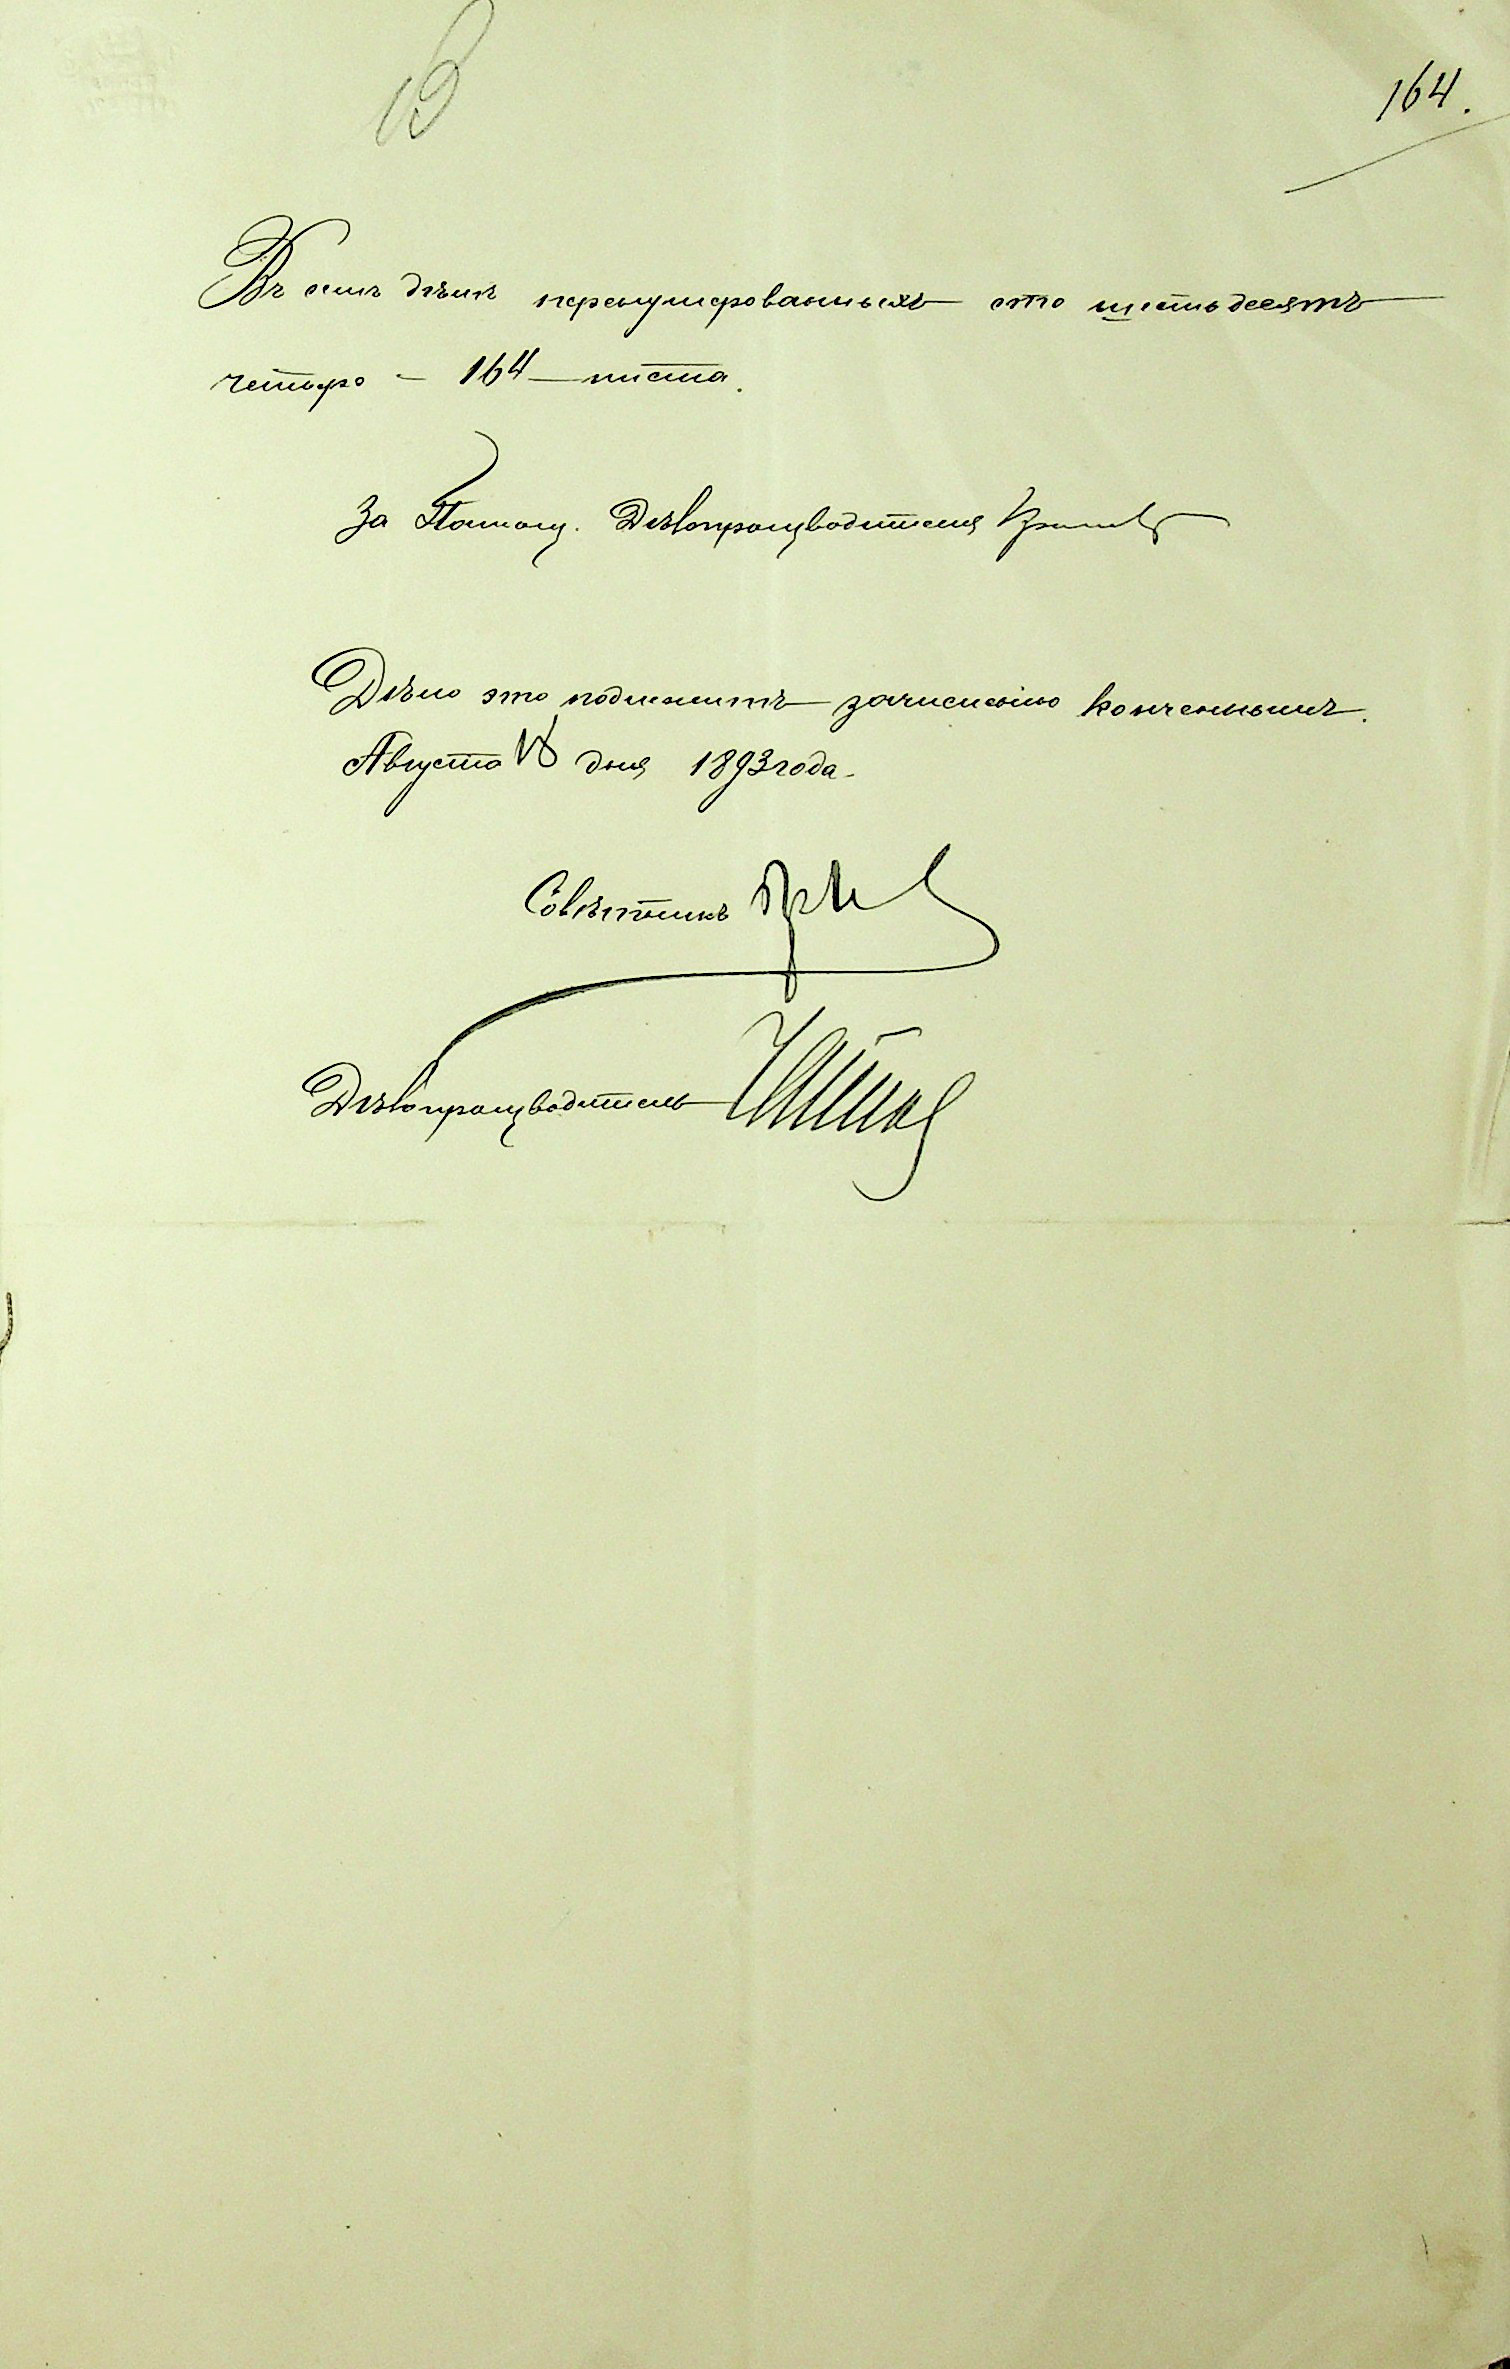 164.
Въ семъ дѣлѣ перенумерованныхъ сто шестьдесятъ
четыре – 164 – листа.
За Помощ. Дѣлопроизводителя
Дѣло это подлежитъ зачисленію конченнымъ.
Августа дня 1893 года.
Совѣтникъ
Дѣлопроизводитель